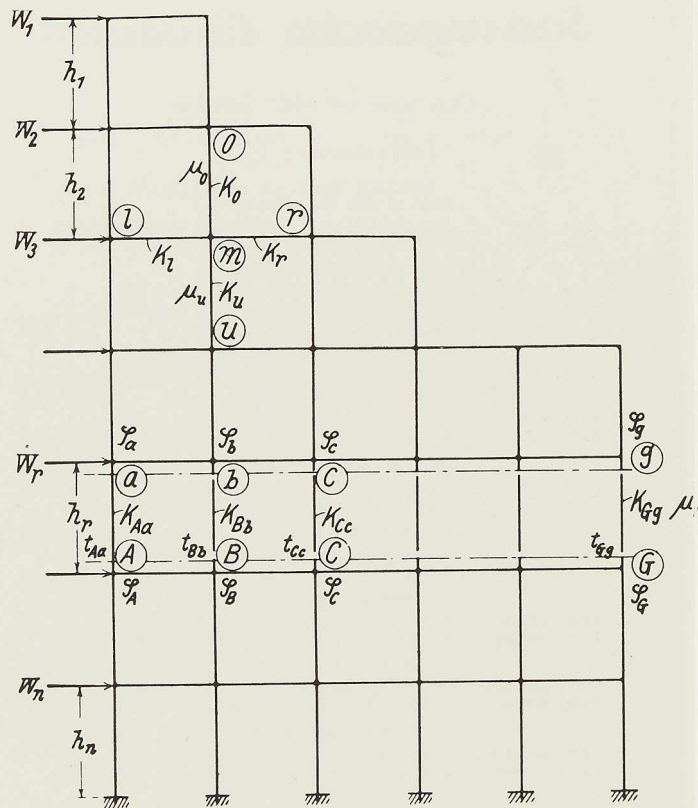 W₁
h₁
W₂
O
h₂
μₒ Kₒ
l r
W₃
K_l m K_r
μᵤ Kᵤ
u
φₐ φ_b φ_c φ_g
W_r
a b C g
h_r
K_Aa K_Bb K_Cc K_Gg μ
t_Aa A t_Bb B t_Cc C t_Gg G
φ_A φ_B φ_C φ_G
Wₙ
hₙ